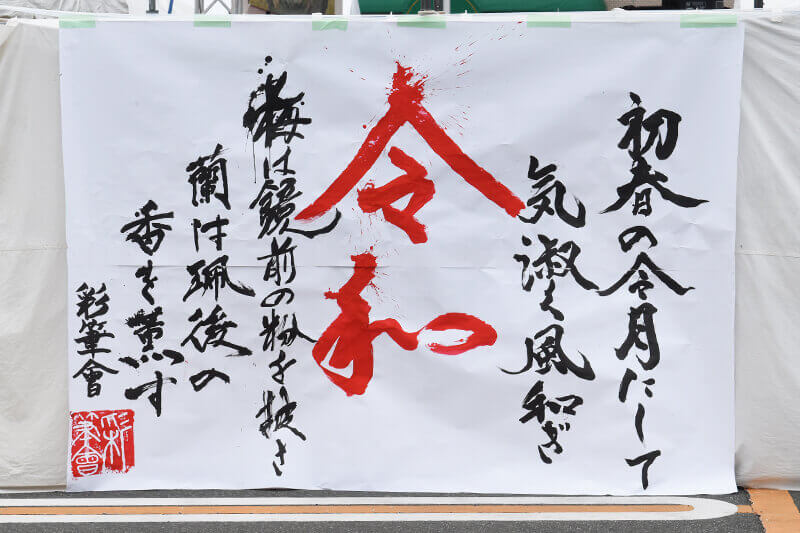 初春の令月にして
気淑く風和ぎ
令和
梅は鏡前の粉を披き
蘭は珮後の
香を薫す
彩筆會
彩筆會